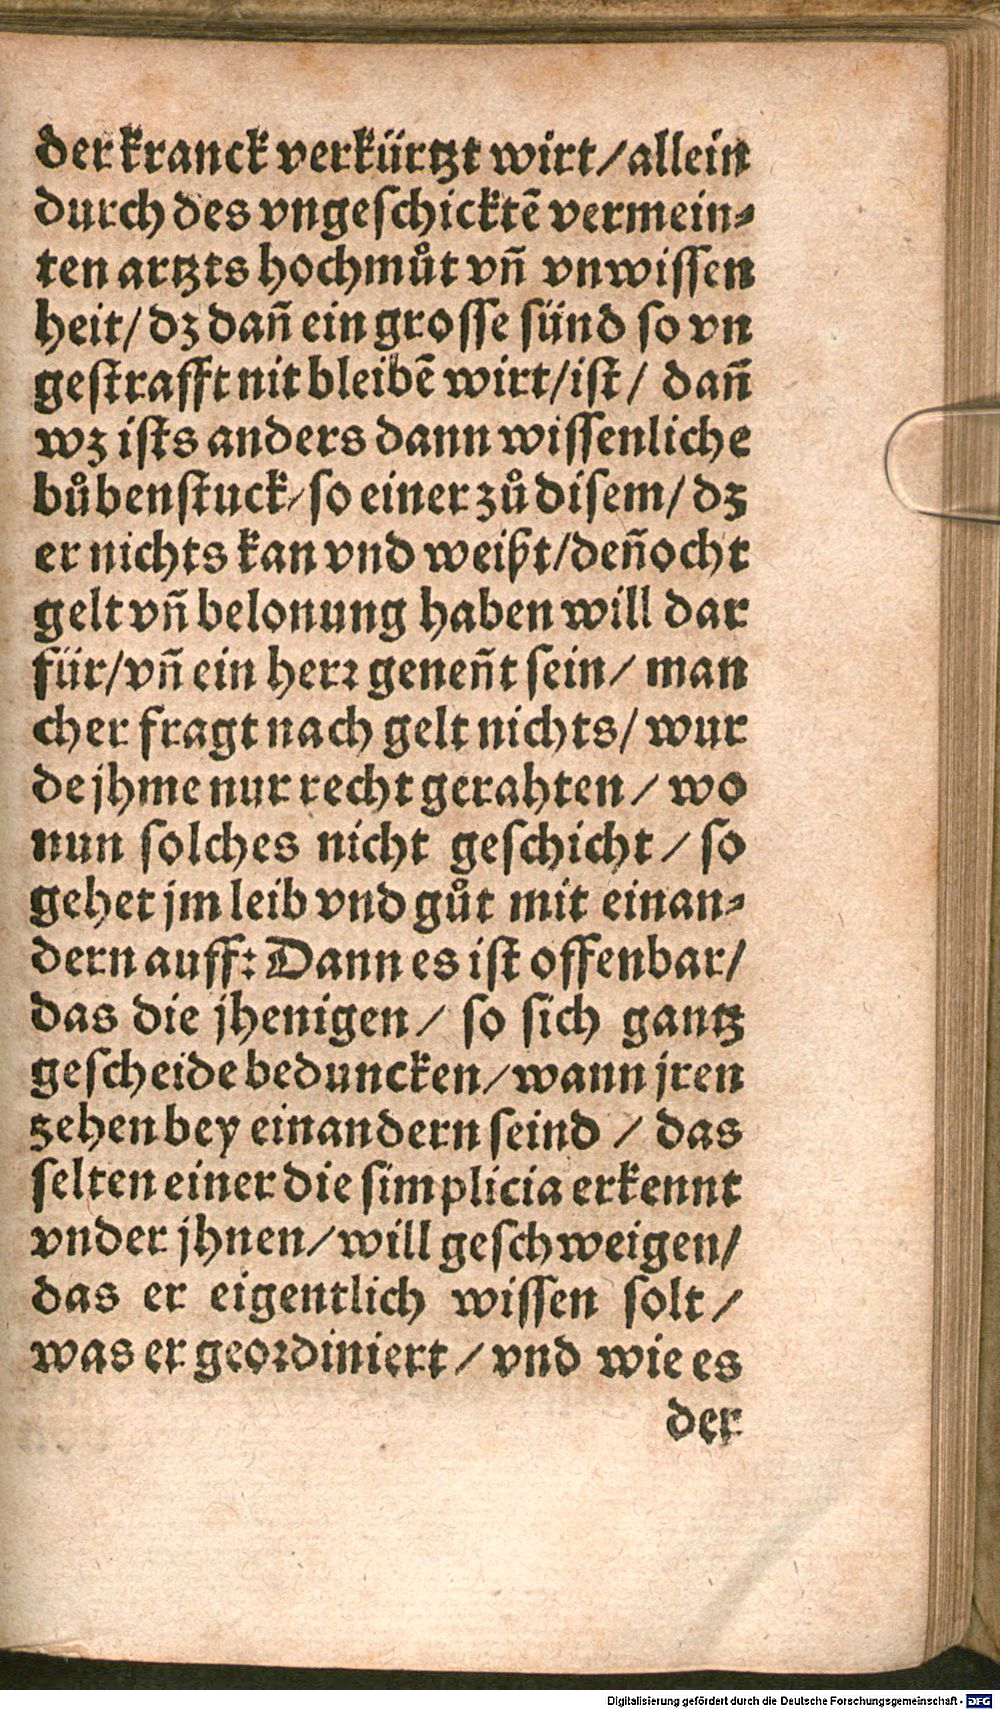 der kranck verkürtzt wirt/allein
durch des vngeschicktē vermein⸗
ten artzts hochmůt vñ vnwissen
heit/ dz dañ ein grosse sünd so vn
gestrafft nit bleibē wirt/ist/ dañ
wz ists anders dann wissenliche
bůbenstuck/so einer zů disem/ dz
er nichts kan vnd weißt/deñocht
gelt vñ belonung haben will dar
für/vñ ein herr geneñt sein/ man
cher fragt nach gelt nichts/ wur
de jhme nur recht gerahten/ wo
nun solches nicht geschicht/ so
gehet jm leib vnd gůt mit einan⸗
dern auff: Dann es ist offenbar/
das die jhenigen/ so sich gantz
gescheide beduncken/wann jren
zehen bey einandern seind / das
selten einer die simplicia erkennt
vnder jhnen/will geschweigen/
das er eigentlich wissen solt/
was er geordiniert/vnd wie es
der
Digitalisierung gefördert durch die Deutsche Forschungsgemeinschaft - DFG